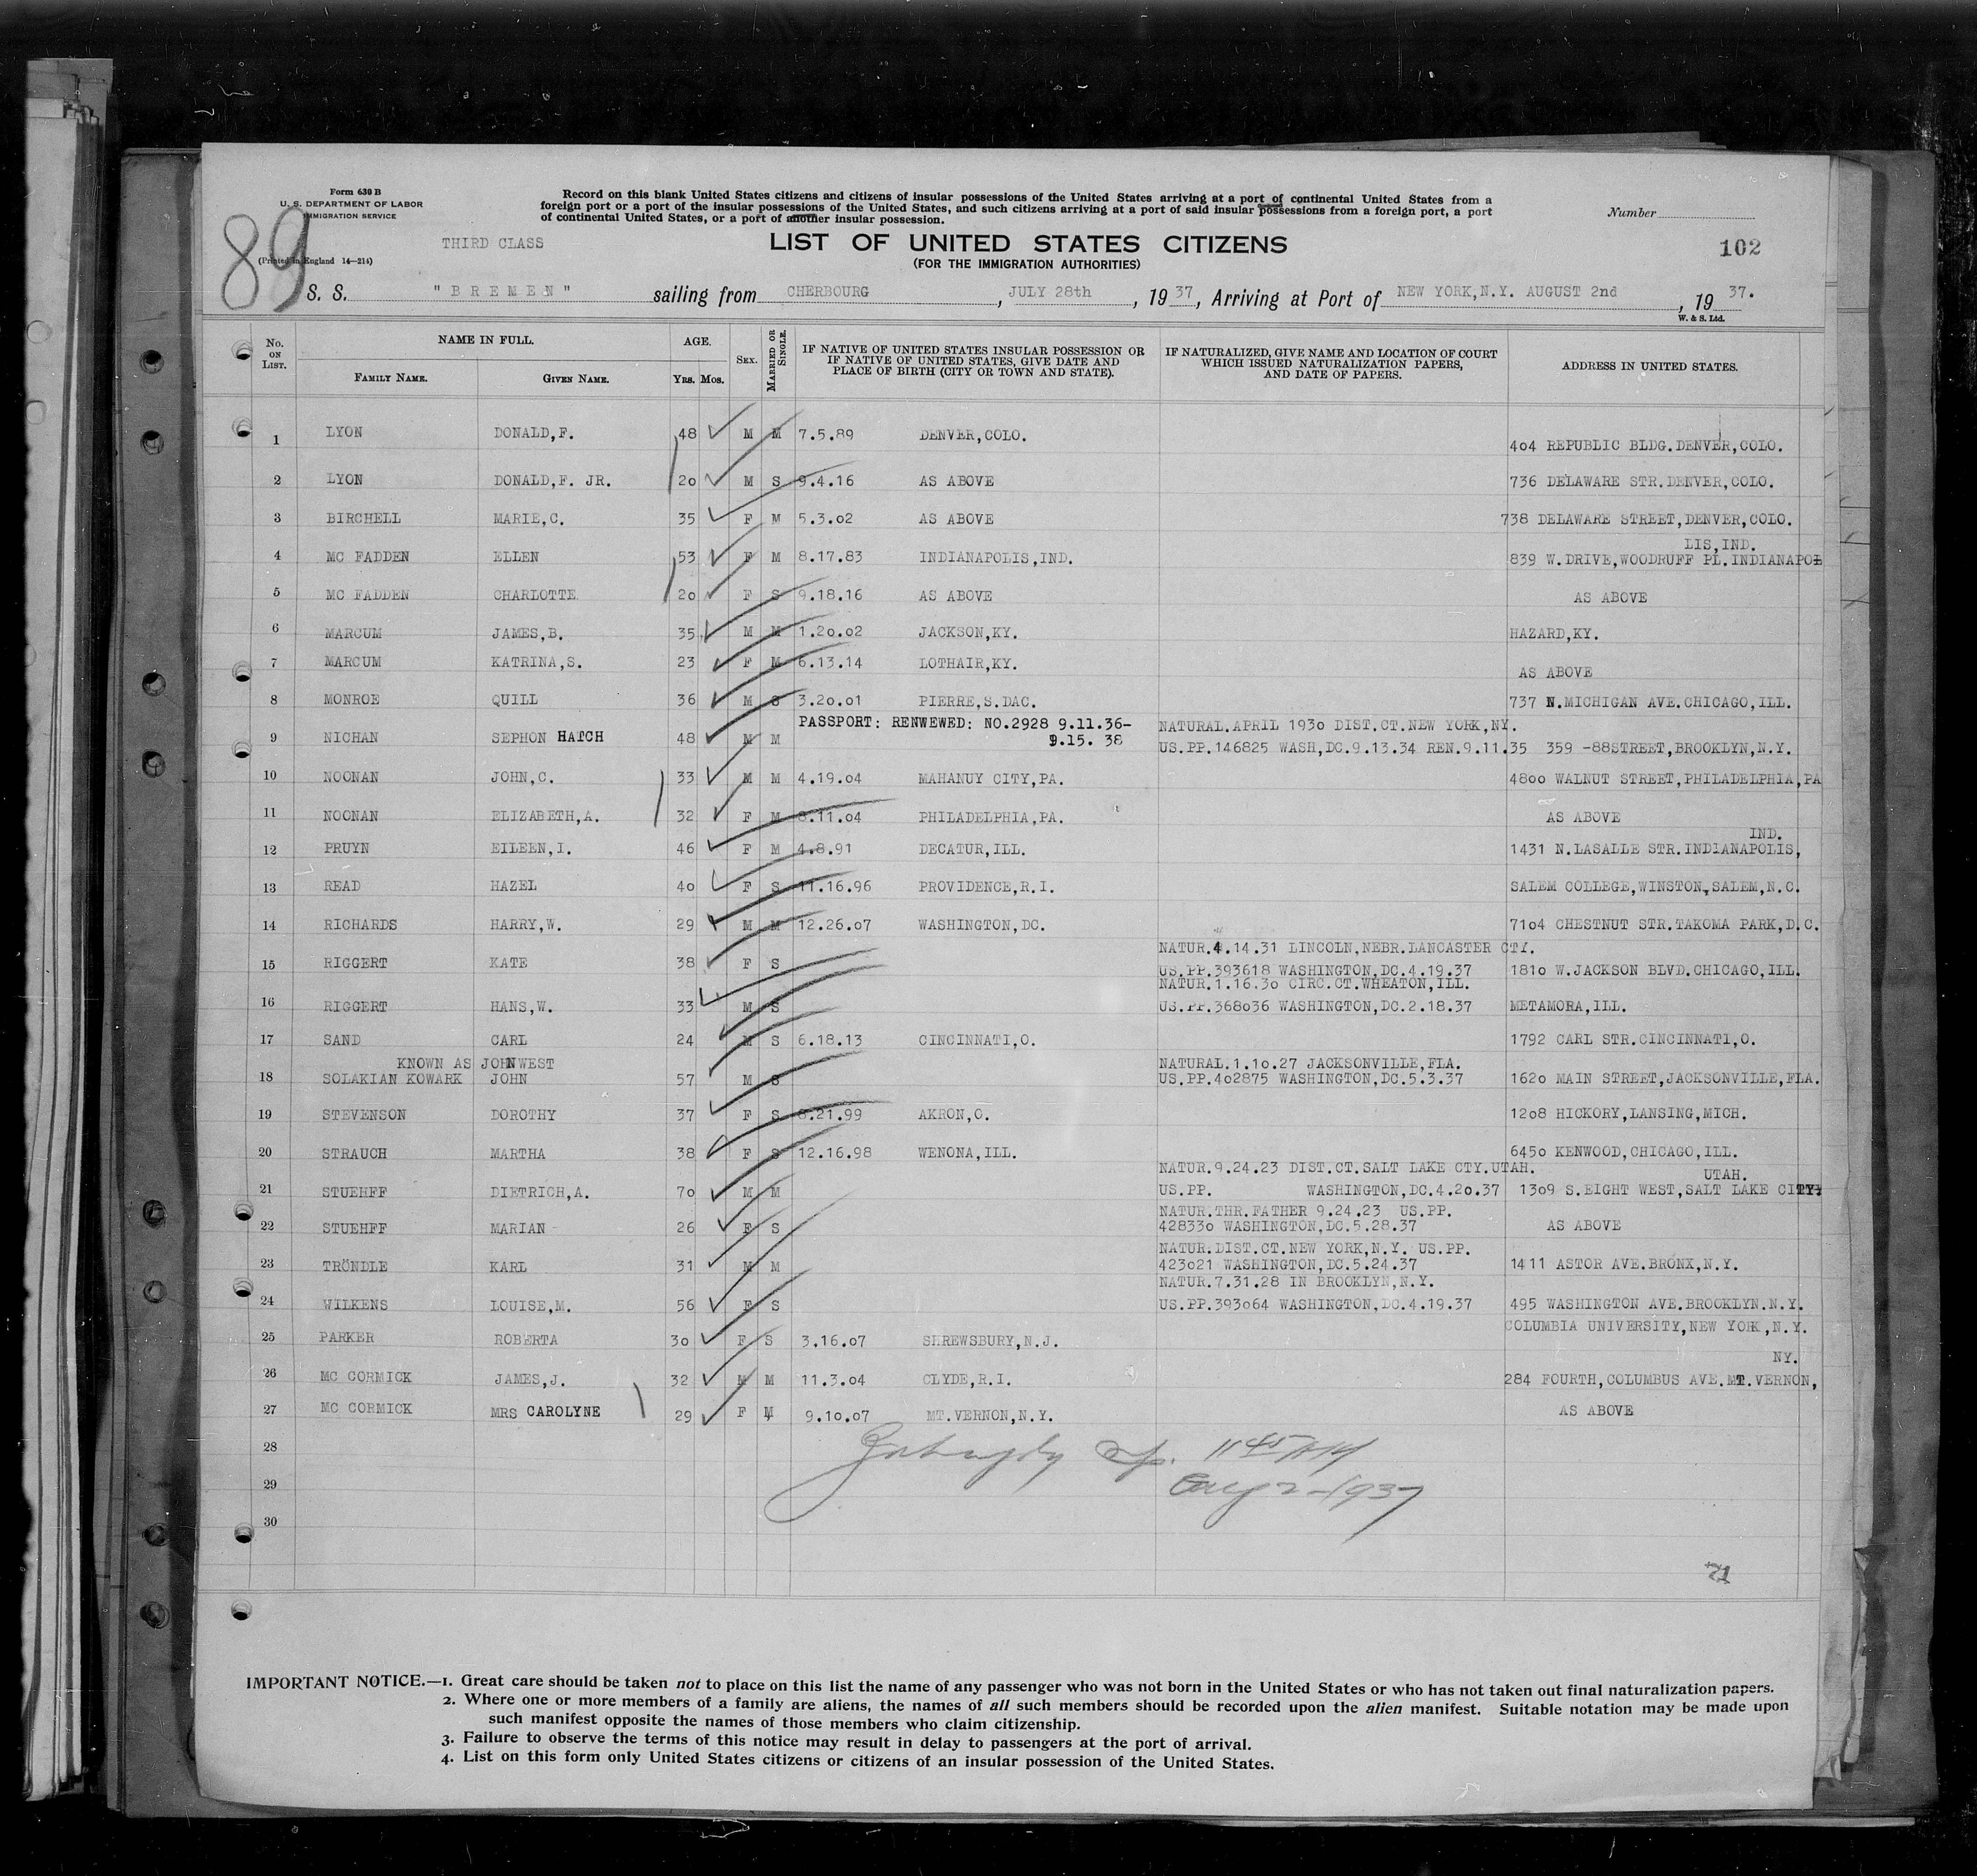 Form 630 B
U. S. DEPARTMENT OF LABOR
IMMIGRATION SERVICE
(Printed in England 14—214)
89
THIRD CLASS
Record on this blank United States citizens and citizens of insular possessions of the United States arriving at a port of continental United States from a
foreign port or a port of the insular possessions of the United States, and such citizens arriving at a port of said insular possessions from a foreign port, a port
of continental United States, or a port of another insular possession.
Number
LIST OF UNITED STATES CITIZENS
(FOR THE IMMIGRATION AUTHORITIES)
102
S. S. "BREMEN" sailing from CHERBOURG, JULY 28th, 1937, Arriving at Port of NEW YORK,N.Y. AUGUST 2nd, 1937.
W. & S. Ltd.
No. ON LIST. NAME IN FULL. FAMILY NAME. GIVEN NAME. AGE. YRS. MOS. SEX. MARRIED OR SINGLE. IF NATIVE OF UNITED STATES INSULAR POSSESSION OR IF NATIVE OF UNITED STATES, GIVE DATE AND PLACE OF BIRTH (CITY OR TOWN AND STATE). IF NATURALIZED, GIVE NAME AND LOCATION OF COURT WHICH ISSUED NATURALIZATION PAPERS, AND DATE OF PAPERS. ADDRESS IN UNITED STATES.
1 LYON DONALD,F. 48 M M 7.5.89 DENVER,COLO. 404 REPUBLIC BLDG.DENVER,COLO.
2 LYON DONALD,F. JR. 20 M S 9.4.16 AS ABOVE 736 DELAWARE STR.DENVER,COLO.
3 BIRCHELL MARIE,C. 35 F M 5.3.02 AS ABOVE 738 DELAWARE STREET,DENVER,COLO.
LIS,IND.
4 MC FADDEN ELLEN 53 F M 8.17.83 INDIANAPOLIS,IND. 839 W.DRIVE,WOODRUFF PL.INDIANAPOL
5 MC FADDEN CHARLOTTE 20 F S 9.18.16 AS ABOVE AS ABOVE
6 MARCUM JAMES,B. 35 M M 1.20.02 JACKSON,KY. HAZARD,KY.
7 MARCUM KATRINA,S. 23 F M 6.13.14 LOTHAIR,KY. AS ABOVE
8 MONROE QUILL 36 M S 3.20.01 PIERRE,S.DAC. 737 N.MICHIGAN AVE.CHICAGO,ILL.
PASSPORT: RENWEWED: NO.2928 9.11.36- NATURAL.APRIL 1930 DIST.CT.NEW YORK,NY.
9 NICHAN SEPHON HATCH 48 M M 9.15. 38 US.PP.146825 WASH,DC.9.13.34 REN.9.11.35 359 -88STREET,BROOKLYN,N.Y.
10 NOONAN JOHN,C. 33 M M 4.19.04 MAHANUY CITY,PA. 4800 WALNUT STREET,PHILADELPHIA,PA
11 NOONAN ELIZABETH,A. 32 F M 8.11.04 PHILADELPHIA,PA. AS ABOVE
IND.
12 PRUYN EILEEN,I. 46 F M 4.8.91 DECATUR,ILL. 1431 N.LASALLE STR.INDIANAPOLIS,
13 READ HAZEL 40 F S 11.16.96 PROVIDENCE,R.I. SALEM COLLEGE,WINSTON,SALEM,N.C.
14 RICHARDS HARRY,W. 29 M M 12.26.07 WASHINGTON,DC. 7104 CHESTNUT STR.TAKOMA PARK,D.C.
NATUR.4.14.31 LINCOLN,NEBR.LANCASTER CTY.
15 RIGGERT KATE 38 F S US.PP.393618 WASHINGTON,DC.4.19.37 1810 W.JACKSON BLVD.CHICAGO,ILL.
NATUR.1.16.30 CIRC.CT.WHEATON,ILL.
16 RIGGERT HANS,W. 33 M S US.PP.368036 WASHINGTON,DC.2.18.37 METAMORA,ILL.
17 SAND CARL 24 M S 6.18.13 CINCINNATI,O. 1792 CARL STR.CINCINNATI,O.
KNOWN AS JOHN WEST NATURAL.1.10.27 JACKSONVILLE,FLA.
18 SOLAKIAN KOWARK JOHN 57 M S US.PP.402875 WASHINGTON,DC.5.3.37 1620 MAIN STREET,JACKSONVILLE,FLA.
19 STEVENSON DOROTHY 37 F S 8.21.99 AKRON,O. 1208 HICKORY,LANSING,MICH.
20 STRAUCH MARTHA 38 F S 12.16.98 WENONA,ILL. 6450 KENWOOD,CHICAGO,ILL.
NATUR.9.24.23 DIST.CT.SALT LAKE CTY.UTAH. UTAH.
21 STUEHFF DIETRICH,A. 70 M M US.PP. WASHINGTON,DC.4.20.37 1309 S.EIGHT WEST,SALT LAKE CITY.
NATUR.THR.FATHER 9.24.23 US.PP.
22 STUEHFF MARIAN 26 F S 428330 WASHINGTON,DC.5.28.37 AS ABOVE
NATUR.DIST.CT.NEW YORK,N.Y. US.PP.
23 TRÖNDLE KARL 31 M M 423021 WASHINGTON,DC.5.24.37 1411 ASTOR AVE.BRONX,N.Y.
NATUR.7.31.28 IN BROOKLYN,N.Y.
24 WILKENS LOUISE,M. 56 F S US.PP.393064 WASHINGTON,DC.4.19.37 495 WASHINGTON AVE.BROOKLYN.N.Y.
25 PARKER ROBERTA 30 F S 3.16.07 SHREWSBURY,N.J. COLUMBIA UNIVERSITY,NEW YORK,N.Y.
NY.
26 MC CORMICK JAMES,J. 32 M M 11.3.04 CLYDE,R.I. 284 FOURTH,COLUMBUS AVE.MT.VERNON,
27 MC CORMICK MRS CAROLYNE 29 F M 9.10.07 MT.VERNON,N.Y. AS ABOVE
28
29 Aug 2-1937
30
IMPORTANT NOTICE.—1. Great care should be taken not to place on this list the name of any passenger who was not born in the United States or who has not taken out final naturalization papers.
2. Where one or more members of a family are aliens, the names of all such members should be recorded upon the alien manifest. Suitable notation may be made upon
such manifest opposite the names of those members who claim citizenship.
3. Failure to observe the terms of this notice may result in delay to passengers at the port of arrival.
4. List on this form only United States citizens or citizens of an insular possession of the United States.